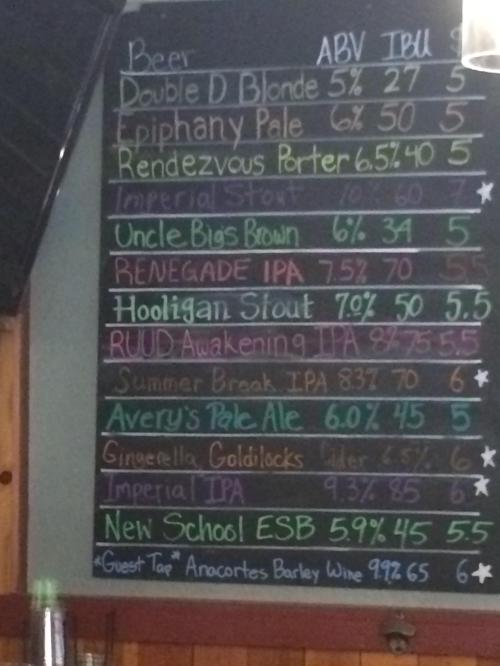 Beer ABV IBU $
Double D Blonde 5% 27 5
Epiphany Pale 6% 50 5
Rendezvous Porter 6.5% 40 5
Imperial Stout 10% 60 7
Uncle Big's Brown 6% 34 5
RENEGADE IPA 7.5% 70 5.5
Hooligan Stout 7.0% 50 5.5
RUUD Awakening IPA 8% 75 5.5
Summer Break IPA 8.3% 70 6
Avery's Pale Ale 6.0% 45 5
Gingerella Goldilocks 6.8% 6
Imperial IPA 9.3% 85 6
New School ESB 5.9% 45 5.5
*Guest Tap* Anacortes Barley Wine 9.9% 65 6